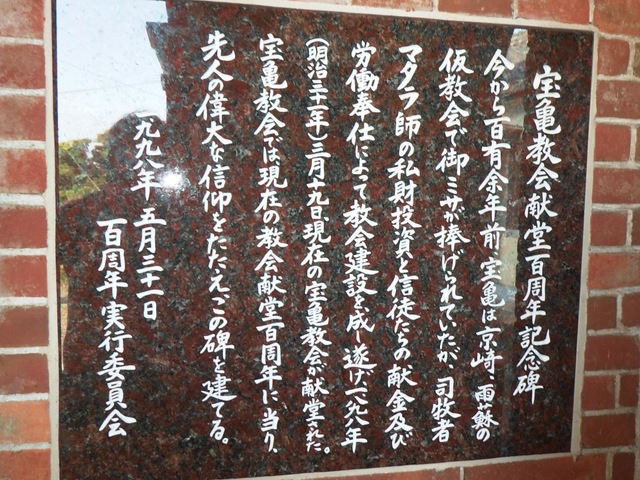 宝亀教会献堂百周年記念碑
今から百有余年前、宝亀は京崎、雨蘇の
仮教会で御ミサが捧げられていたが、司牧者
マタラ師の私財投資と信徒たちの献金及び
労働奉仕によって教会建設を成し遂げ、一八九八年
(明治三十一年)三月十九日、現在の宝亀教会が献堂された。
宝亀教会では現在の教会献堂百周年に当り、
先人の偉大な信仰をたたえ、この碑を建てる。
一九九八年 五月三十一日
百周年実行委員会